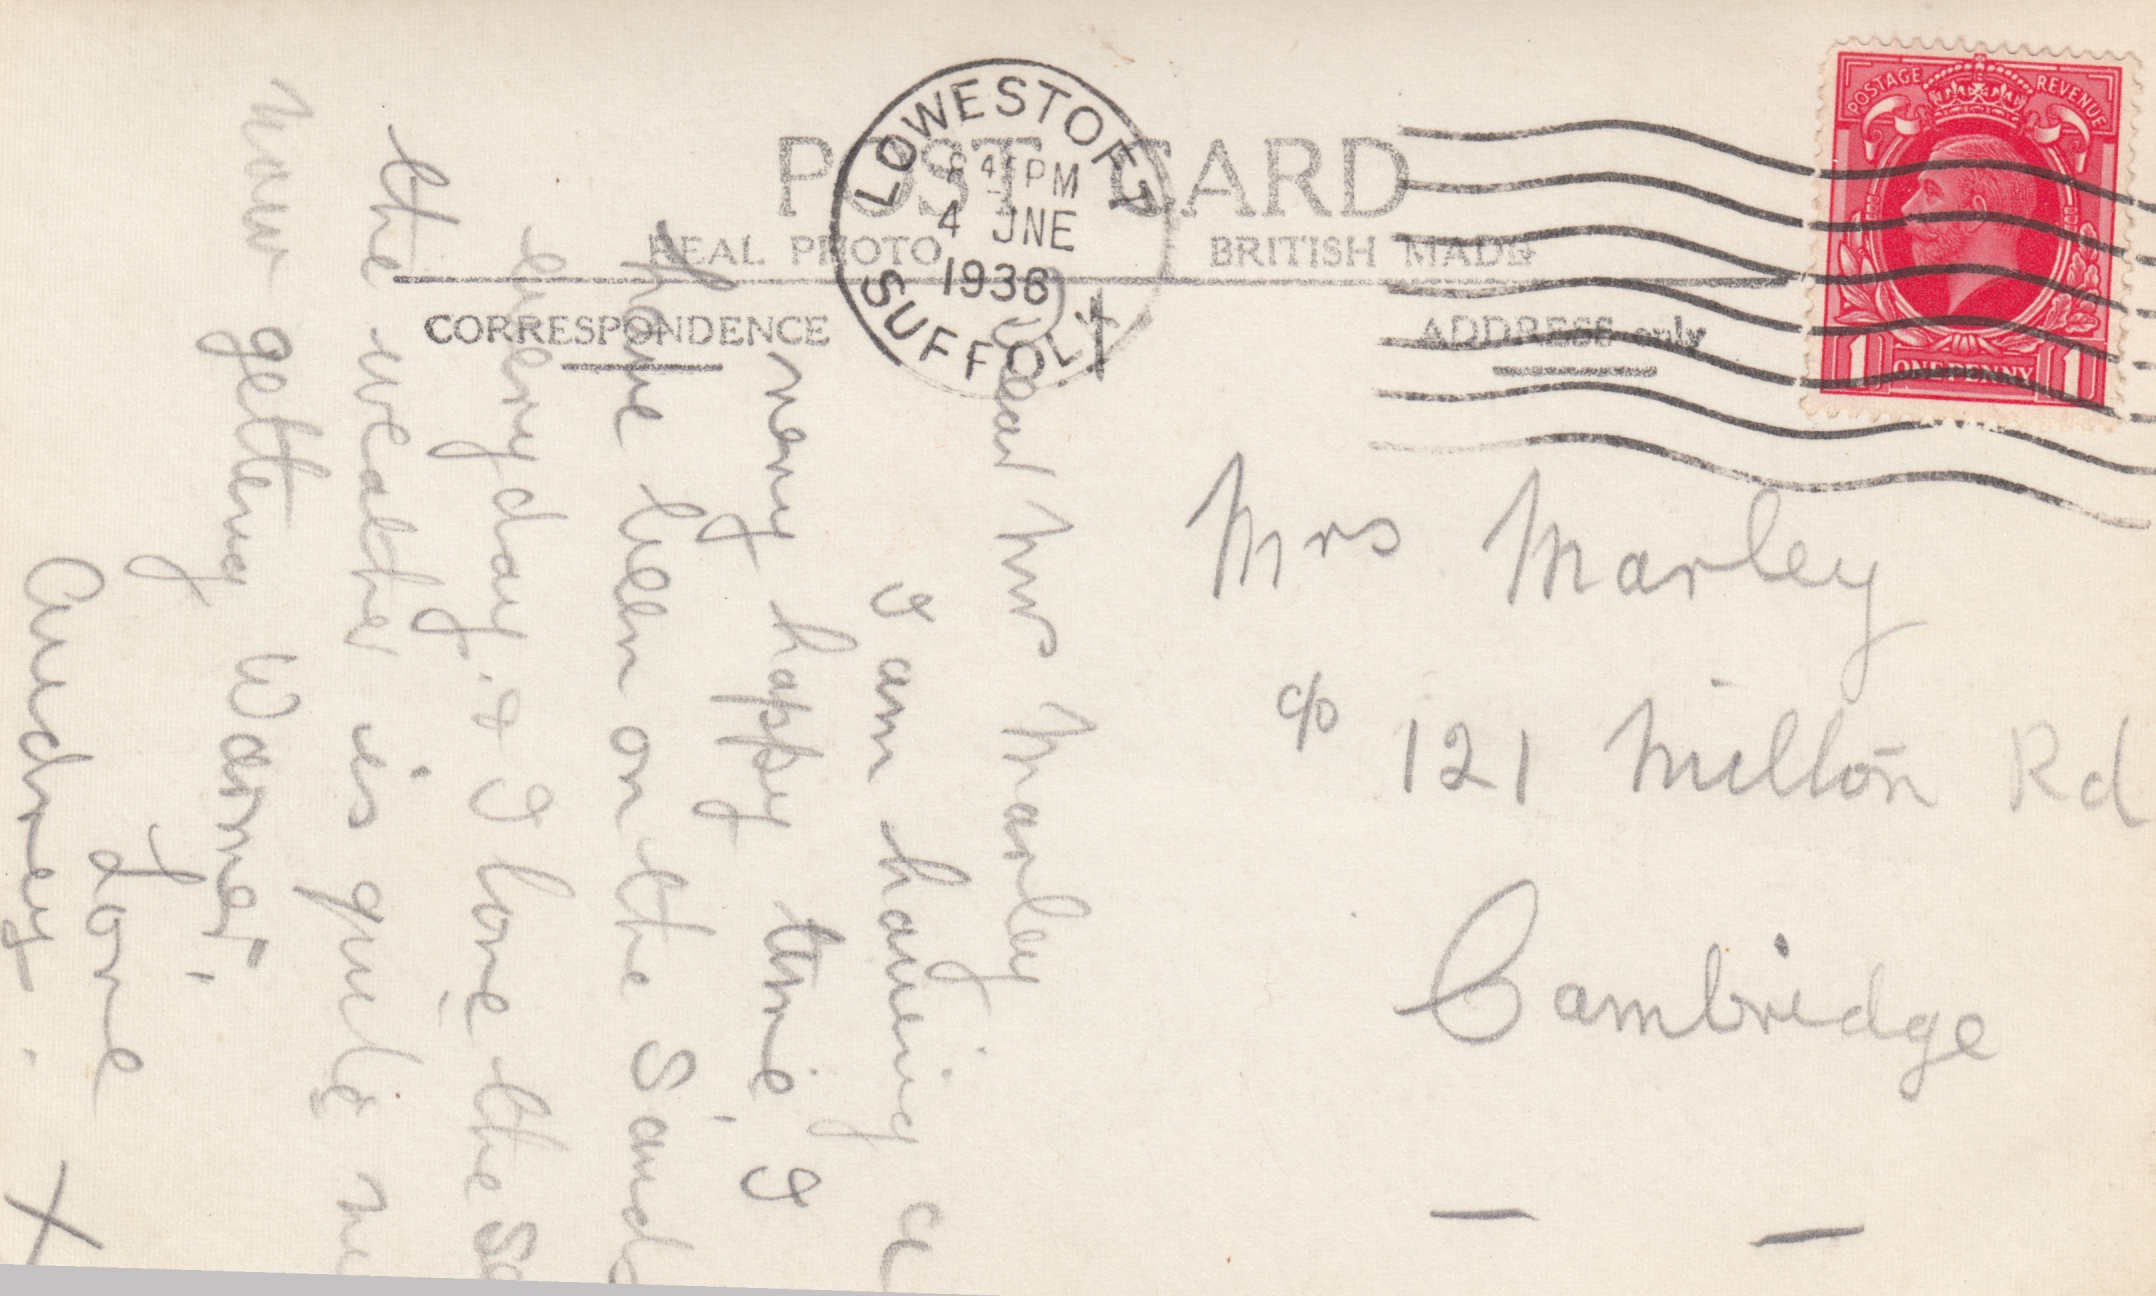 POST CARD
REAL PHOTO
BRITISH MADE
CORRESPONDENCE
ADDRESS only
LOWESTOFT
PM
4 JNE
1936
SUFFOLK
POSTAGE REVENUE
1 ONE PENNY 1
Dear Mrs Marley
I am having a
very happy time, I
have been on the Sands
every day, & I love the
the weather is quite
now getting Warmer,
Love
Audrey.
X
Mrs Marley
c/o 121 Milton Rd
Cambridge